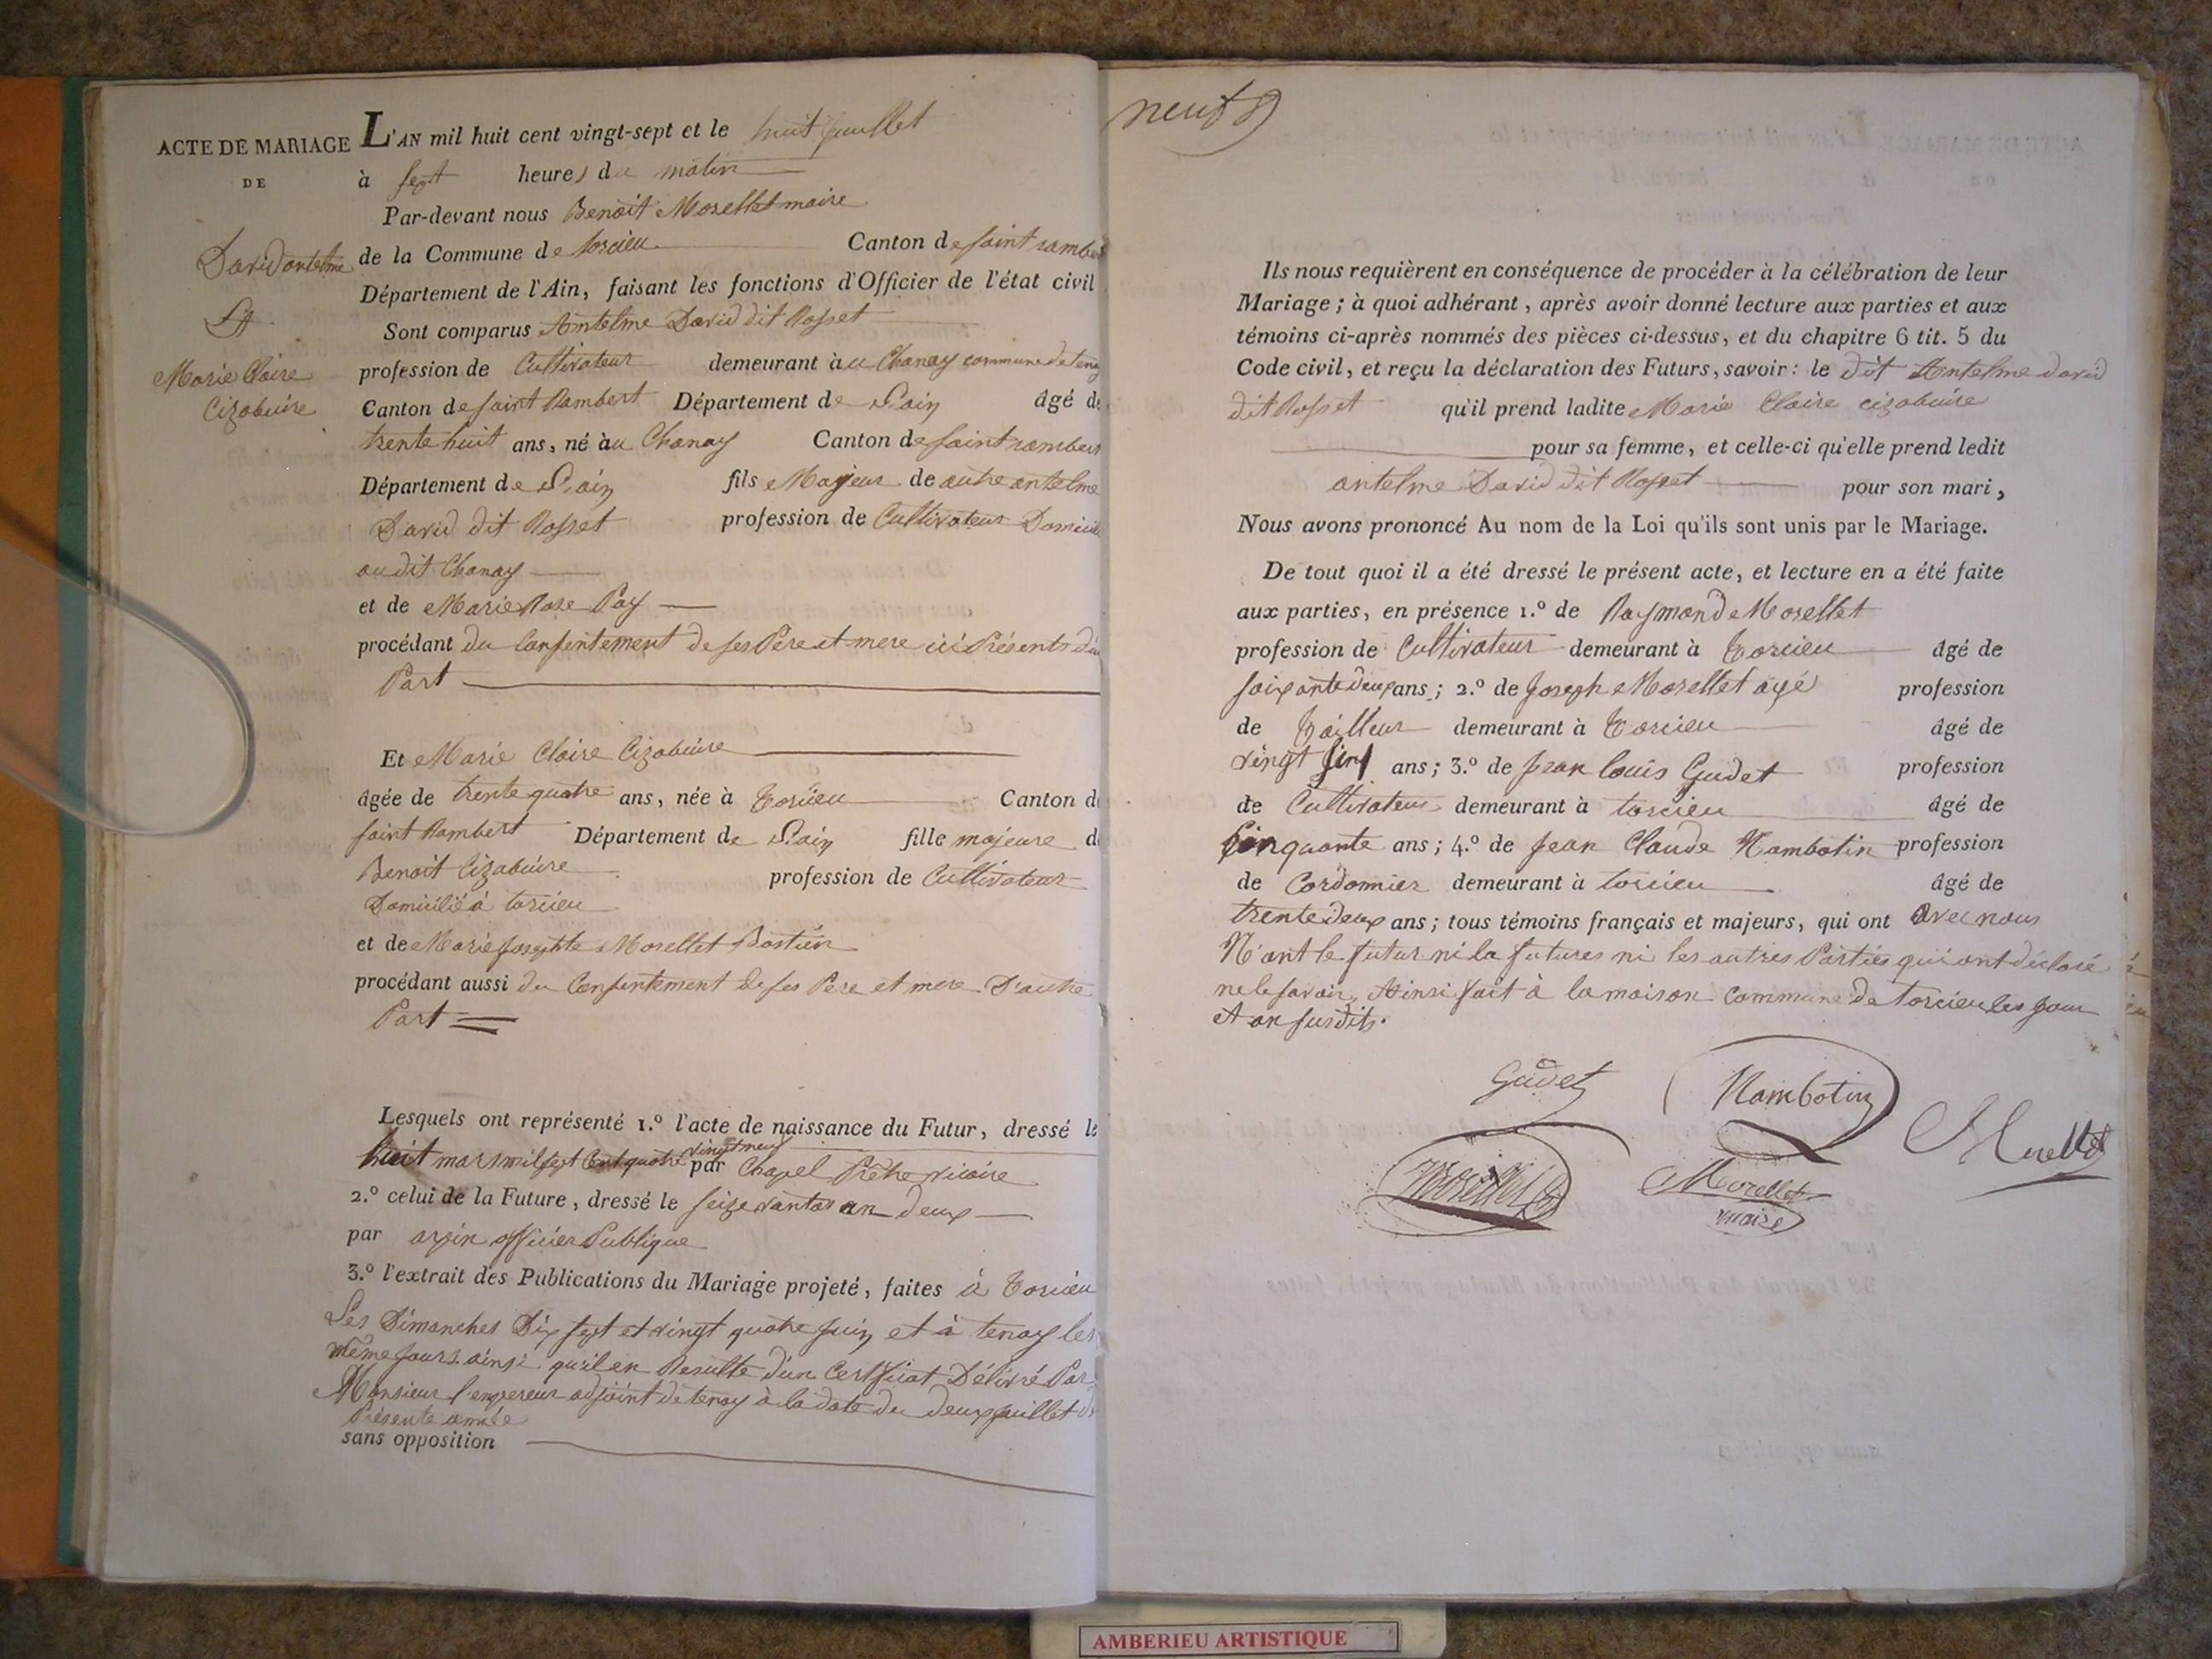 ACTE DE MARIAGE
DE
David antelme
Et
Marie Claire
Cizabuire
L'AN mil huit cent vingt-sept et le huit Juillet
à sept heures du matin
Par-devant nous Benoit Morellet maire
de la Commune de torcieu Canton de saint rambe
Département de l'Ain, faisant les fonctions d'Officier de l'état civil
Sont comparus Antelme David dit Rosset
profession de Cultivateur demeurant àu Chanay commune de tenay
Canton de saint Rambert Département de L'ain âgé de
trente huit ans, né àu Chanay Canton de saint rambert
Département de L'ain fils Majeur de autre antelme
David dit Rosset profession de Cultivateur Domicilié
audit Chanay
et de Marie Rose Pay
procédant du Consentement de ses Pere et mere ici Présents d'une
Part
Et Marie Claire Cizabuire
âgée de trente quatre ans, née à Torcieu Canton de
saint Rambert Département de L'ain fille majeure de
Benoit Cizabuire profession de Cultivateur
Domicilié à torcieu
et de Marie Josephte Morellet Bastien
procédant aussi du Consentement de ses Pere et mere D'autre
Part
Lesquels ont représenté 1.º l'acte de naissance du Futur, dressé le
huit mars mil sept Cent quatre vingt neuf par Chapel Prêtre vicaire
2.º celui de la Future, dressé le seize vantos an deux
par arpin officier Publique
3.º l'extrait des Publications du Mariage projeté, faites à Torcieu
Les Dimanches Dix sept et vingt quatre Juin, et à tenay les
même Jours. ainsi qu'il en Resulte d'un Certificat Délivré Par
Monsieur l'empereur adjoint de tenay à la date du deux juillet de
Présente année
sans opposition
neuf 9
Ils nous requièrent en conséquence de procéder à la célébration de leur
Mariage; à quoi adhérant, après avoir donné lecture aux parties et aux
témoins ci-après nommés des pièces ci-dessus, et du chapitre 6 tit. 5 du
Code civil, et reçu la déclaration des Futurs, savoir: le dit Antelme david
dit Rosset qu'il prend ladite Marie Claire cizabuire
pour sa femme, et celle-ci qu'elle prend ledit
antelme David dit Rosset pour son mari,
Nous avons prononcé Au nom de la Loi qu'ils sont unis par le Mariage.
De tout quoi il a été dressé le présent acte, et lecture en a été faite
aux parties, en présence 1.º de Raymond Morellet
profession de Cultivateur demeurant à Torcieu âgé de
soixante deux ans; 2.º de Joseph Morellet ayé profession
de Tailleur demeurant à Torcieu âgé de
vingt sinq ans; 3.º de Jean louis Gudet profession
de Cultivateur demeurant à torcieu âgé de
Cinquante ans; 4.º de Jean Claude Nambotin profession
de Cordonnier demeurant à torcieu âgé de
trente deux ans; tous témoins français et majeurs, qui ont avec nous
N'ont le futur ni la futures ni les autres Parties qui ont déclaré
ne le savoir, Ainsi fait à la maison Commune de torcieu les jour
et an susdits.
Gudet
Nambotin
Morellet
Morellet
Morellet
maire
AMBERIEU ARTISTIQUE